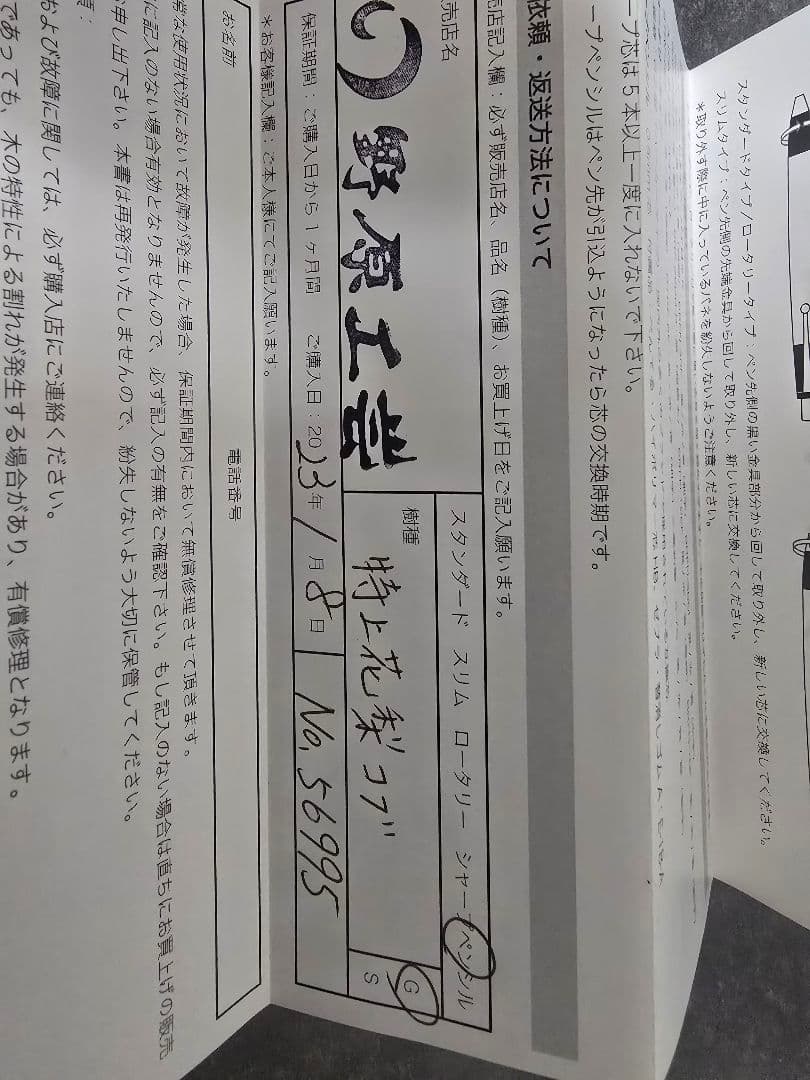 スタンダードタイプ/ロータリータイプ：ペン先側の黒い金具部分から回して取り外し、新しい芯に交換してください。
スリムタイプ：ペン先側の先端金具から回して取り外し、新しい芯に交換してください。
*取り外す際に中に入っているバネを紛失しないようご注意ください。
プ芯は5本以上一度に入れないで下さい。
ープペンシルはペン先が引込ようになったら芯の交換時期です。
依頼・返送方法について
売店記入欄：必ず販売店名、品名（樹種）、お買上げ日をご記入願います。
売店名
野原工芸
スタンダード スリム ロータリー シャープペンシル
樹種
特上花梨コブ
G
S
保証期間：ご購入日から1ヶ月間 ご購入日：2023年1月8日
No.56995
*お客様記入欄：ご本人様にてご記入願います。
お名前
電話番号
常な使用状況において故障が発生した場合、保証期間内において無償修理させて頂きます。
に記入のない場合有効となりませんので、必ず記入の有無をご確認下さい。もし記入のない場合は直ちにお買上げの販売
申し出下さい。本書は再発行いたしませんので、紛失しないよう大切に保管してください。
および故障に関しては、必ず購入店にご連絡ください。
であっても、木の特性による割れが発生する場合があり、有償修理となります。